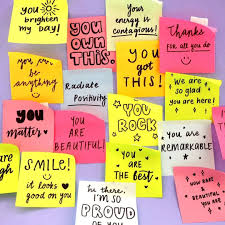 you brighten
my day!
YOU
OWN
THIS.
your
energy is
contagious!
Thanks
for all you do
you
can be
anything
Radiate
Positivity
YOU
GOT
THIS!
we are
so glad
you are here!
you
matter.
YOU
ARE
BEAUTIFUL!
YOU
ROCK
you are
REMARKABLE
SMILE!
it looks
good on you
YOU
ARE
THE best!
hi there,
I'M SO
PROUD
OF YOU
YOU ARE
BEAUTIFUL